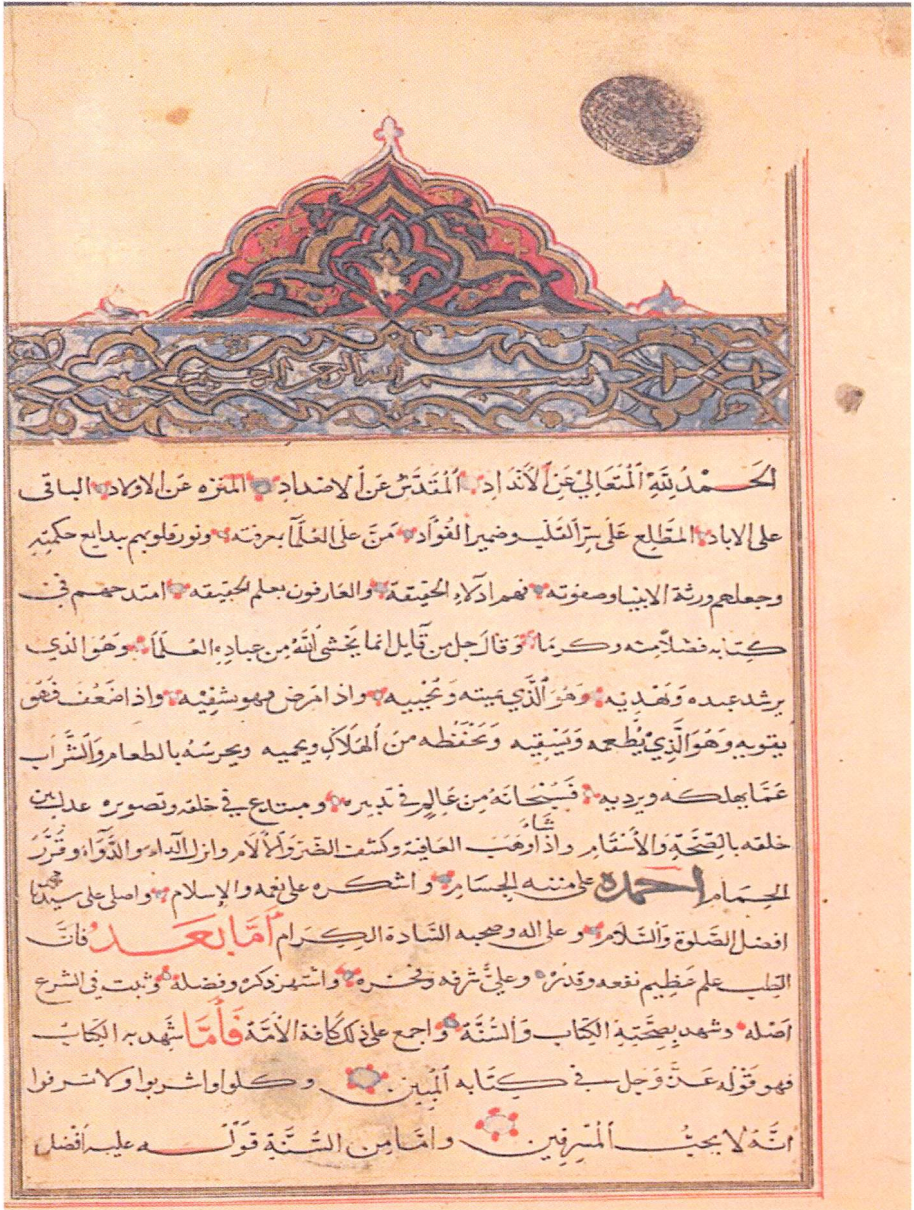 بسم الله الرحمن الرحيم
الحمد لله المتعالي عن الأنداد المقدس عن الاضداد المنزه عن الاولاد الباقى
على الاباد المطلع على سر القلب وضمير الفواد من على العلما بمعرفته ونور قلوبهم ببدايع حكمته
وجعلهم ورثة الانبيا وصفوته فهم ادلاء الحقيقة والعارفون بعلم الحقيقه امتدحهم في
كتابه فضلا منه وكرما وقال جل من قايل انما يخشى الله من عباده العلما وهو الذي
يرشد عبده ويهديه وهو الذي يميته ويحييه واذا مرض فهو يشفيه واذا ضعف فهو
يقويه وهو الذي يطعمه ويسقيه ويحفظه من الهلاك ويحميه ويحرسه بالطعام والشراب
عما يهلكه ويرديه فسبحانه من عالم في تدبيره ومبتدع في خلقه وتصويره عدل بين
خلقه بالصحة والأسقام واذا شاء وهب العافية وكشف الضر والألام وانزل الداء والدواء وقرر
الحمام احمده على مننه الجسام واشكره على نعمه والإسلام واصلى على سيدنا محمد
افضل الصلوة والسلام وعلى اله وصحبه السادة الكرام أما بعد فان
الطب علم عظيم نفعه وقدره وعلي شرفه وفخره واشتهر ذكره وفضله وثبت في الشرع
اصله وشهد بصحته الكتاب والسنة واجمع على ذلك كافة الأمة فأما شهد به الكتاب
فهو قوله عز وجل في كتابه المبين وكلوا واشربوا ولا تسرفوا
انه لا يحب المسرفين واما من السنة قوله عليه افضل